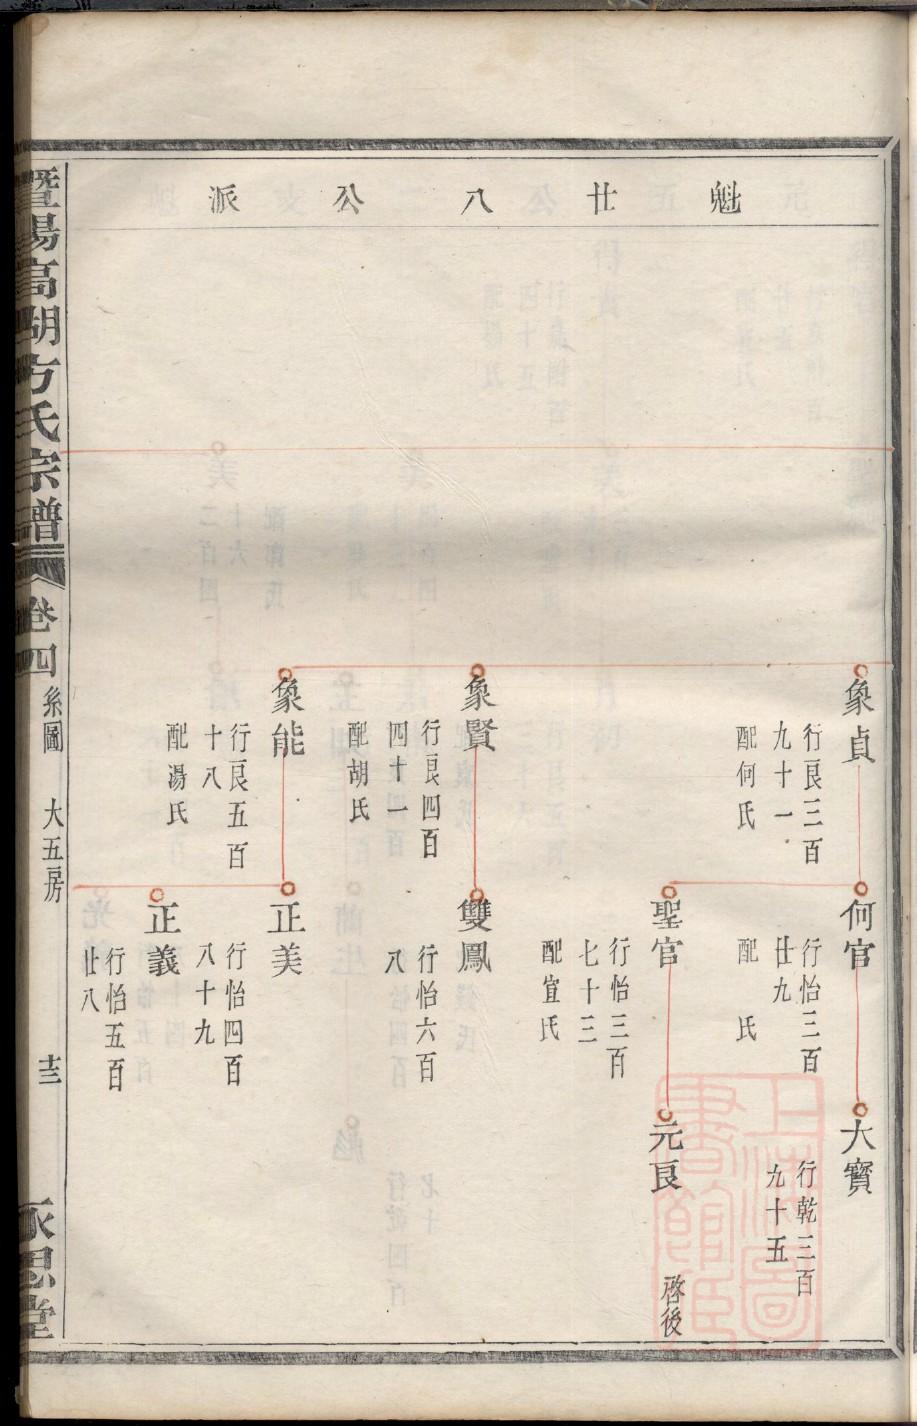 魁廿八公派
象貞
行良三百
九十一
配何氏
象賢
行良四百
四十一
配胡氏
象能
行良五百
十八
配湯氏
何官
行怡三百
廿九
配　氏
聖官
行怡三百
七十三
配宣氏
雙鳳
行怡六百
八
正美
行怡四百
八十九
正義
行怡五百
廿八
大寶
行乾三百
九十五
元良
啓後
暨陽高湖方氏宗譜
卷四
系圖
大五房
十三
永思堂
上海圖書館藏